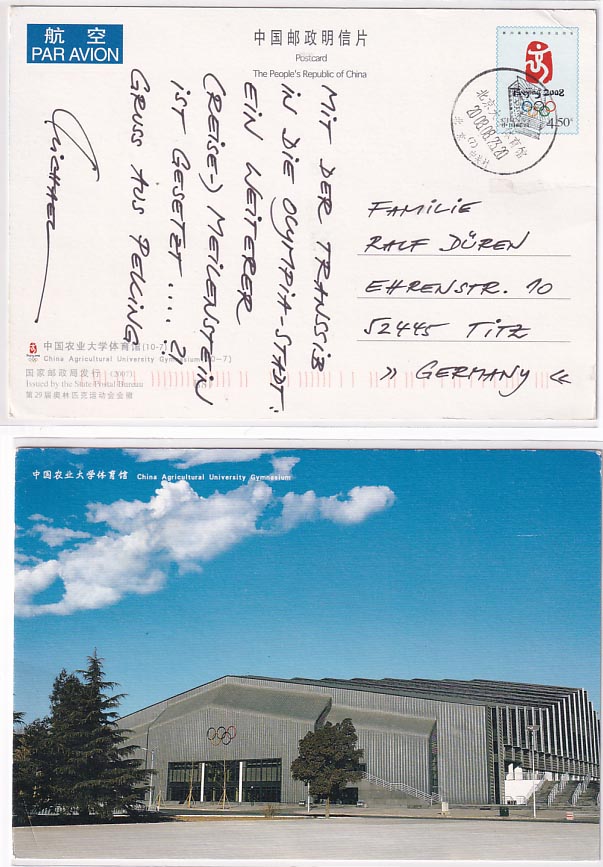 航空
PAR AVION
中国邮政明信片
Postcard
The People's Republic of China
Beijing 2008
4.50
2008.08.23.20
MIT DER TRANSSIB
IN DIE OLYMPIA-STADT.
EIN WEITERER
(REISE-) MEILENSTEIN
IST GESETZT.....2!
GRUSS AUS PEKING
Michael
FAMILIE
RALF DÜREN
EHRENSTR. 10
52445 TITZ
» GERMANY «
中国农业大学体育馆(10-7)
China Agricultural University Gymnasium(10-7)
国家邮政局发行 (2007)
Issued by the State Postal Bureau
第29届奥林匹克运动会会徽
中国农业大学体育馆 China Agricultural University Gymnasium